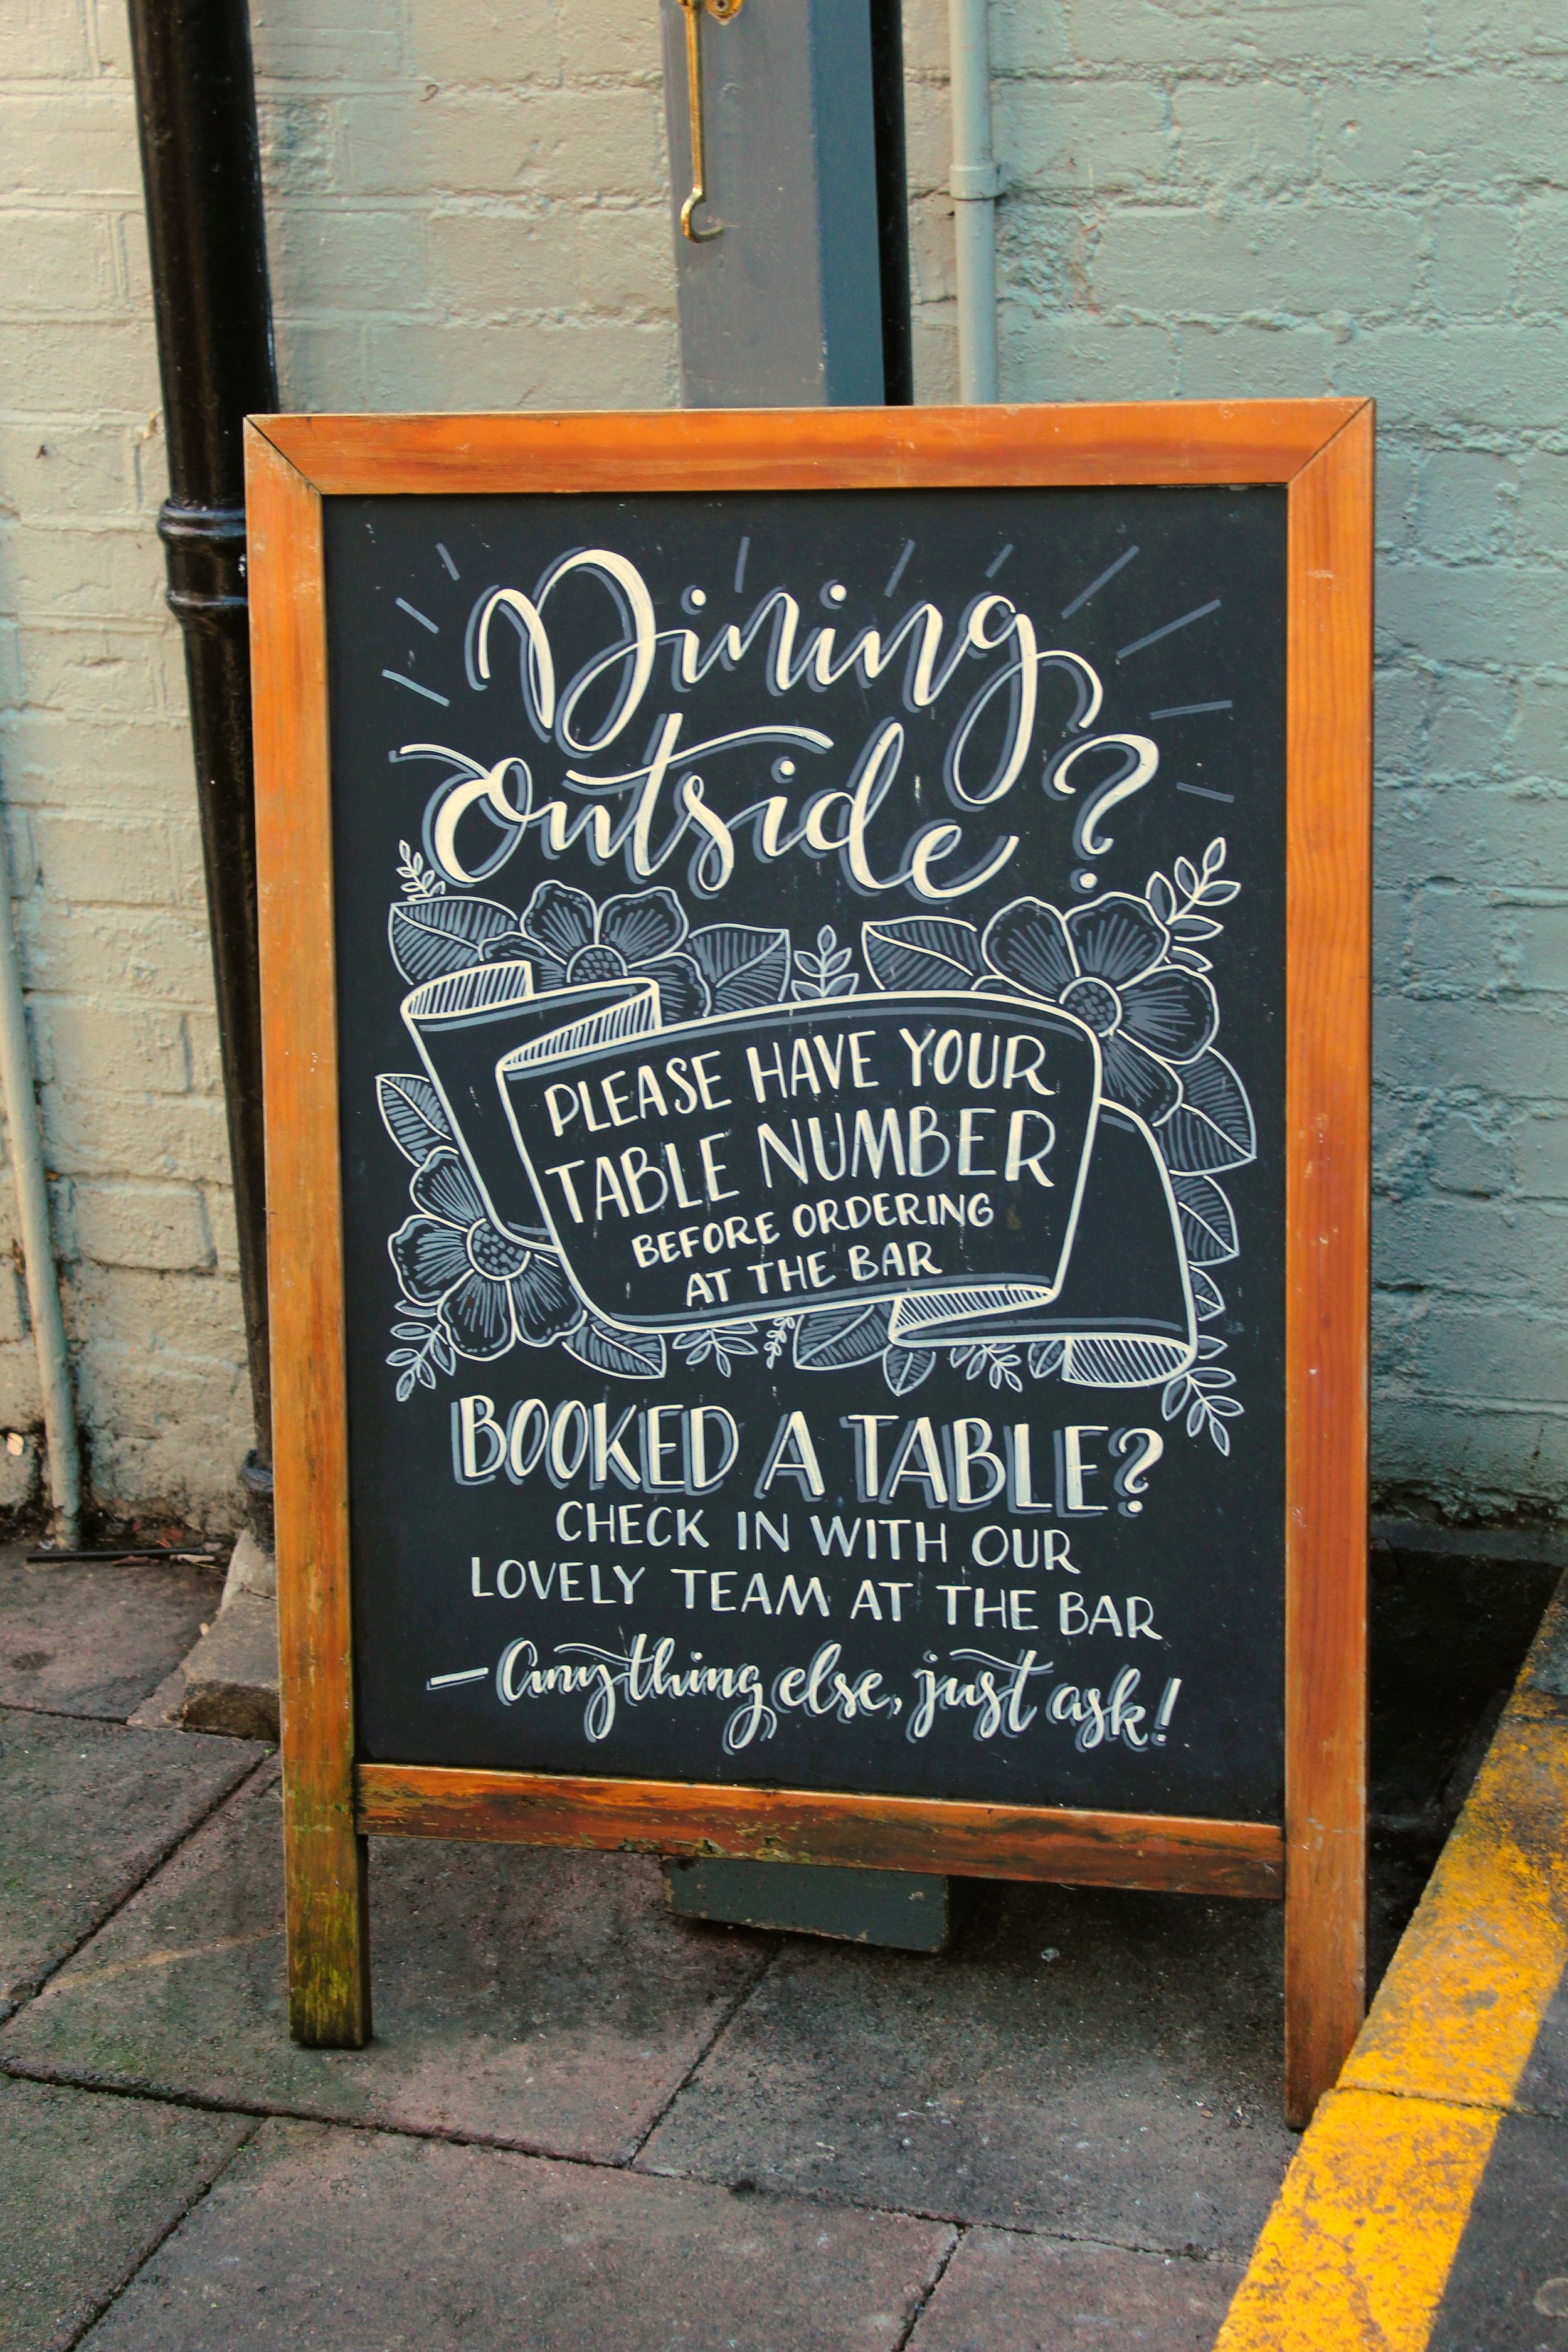 Dining
outside?
PLEASE HAVE YOUR
TABLE NUMBER
BEFORE ORDERING
AT THE BAR
BOOKED A TABLE?
CHECK IN WITH OUR
LOVELY TEAM AT THE BAR
— Anything else, just ask!